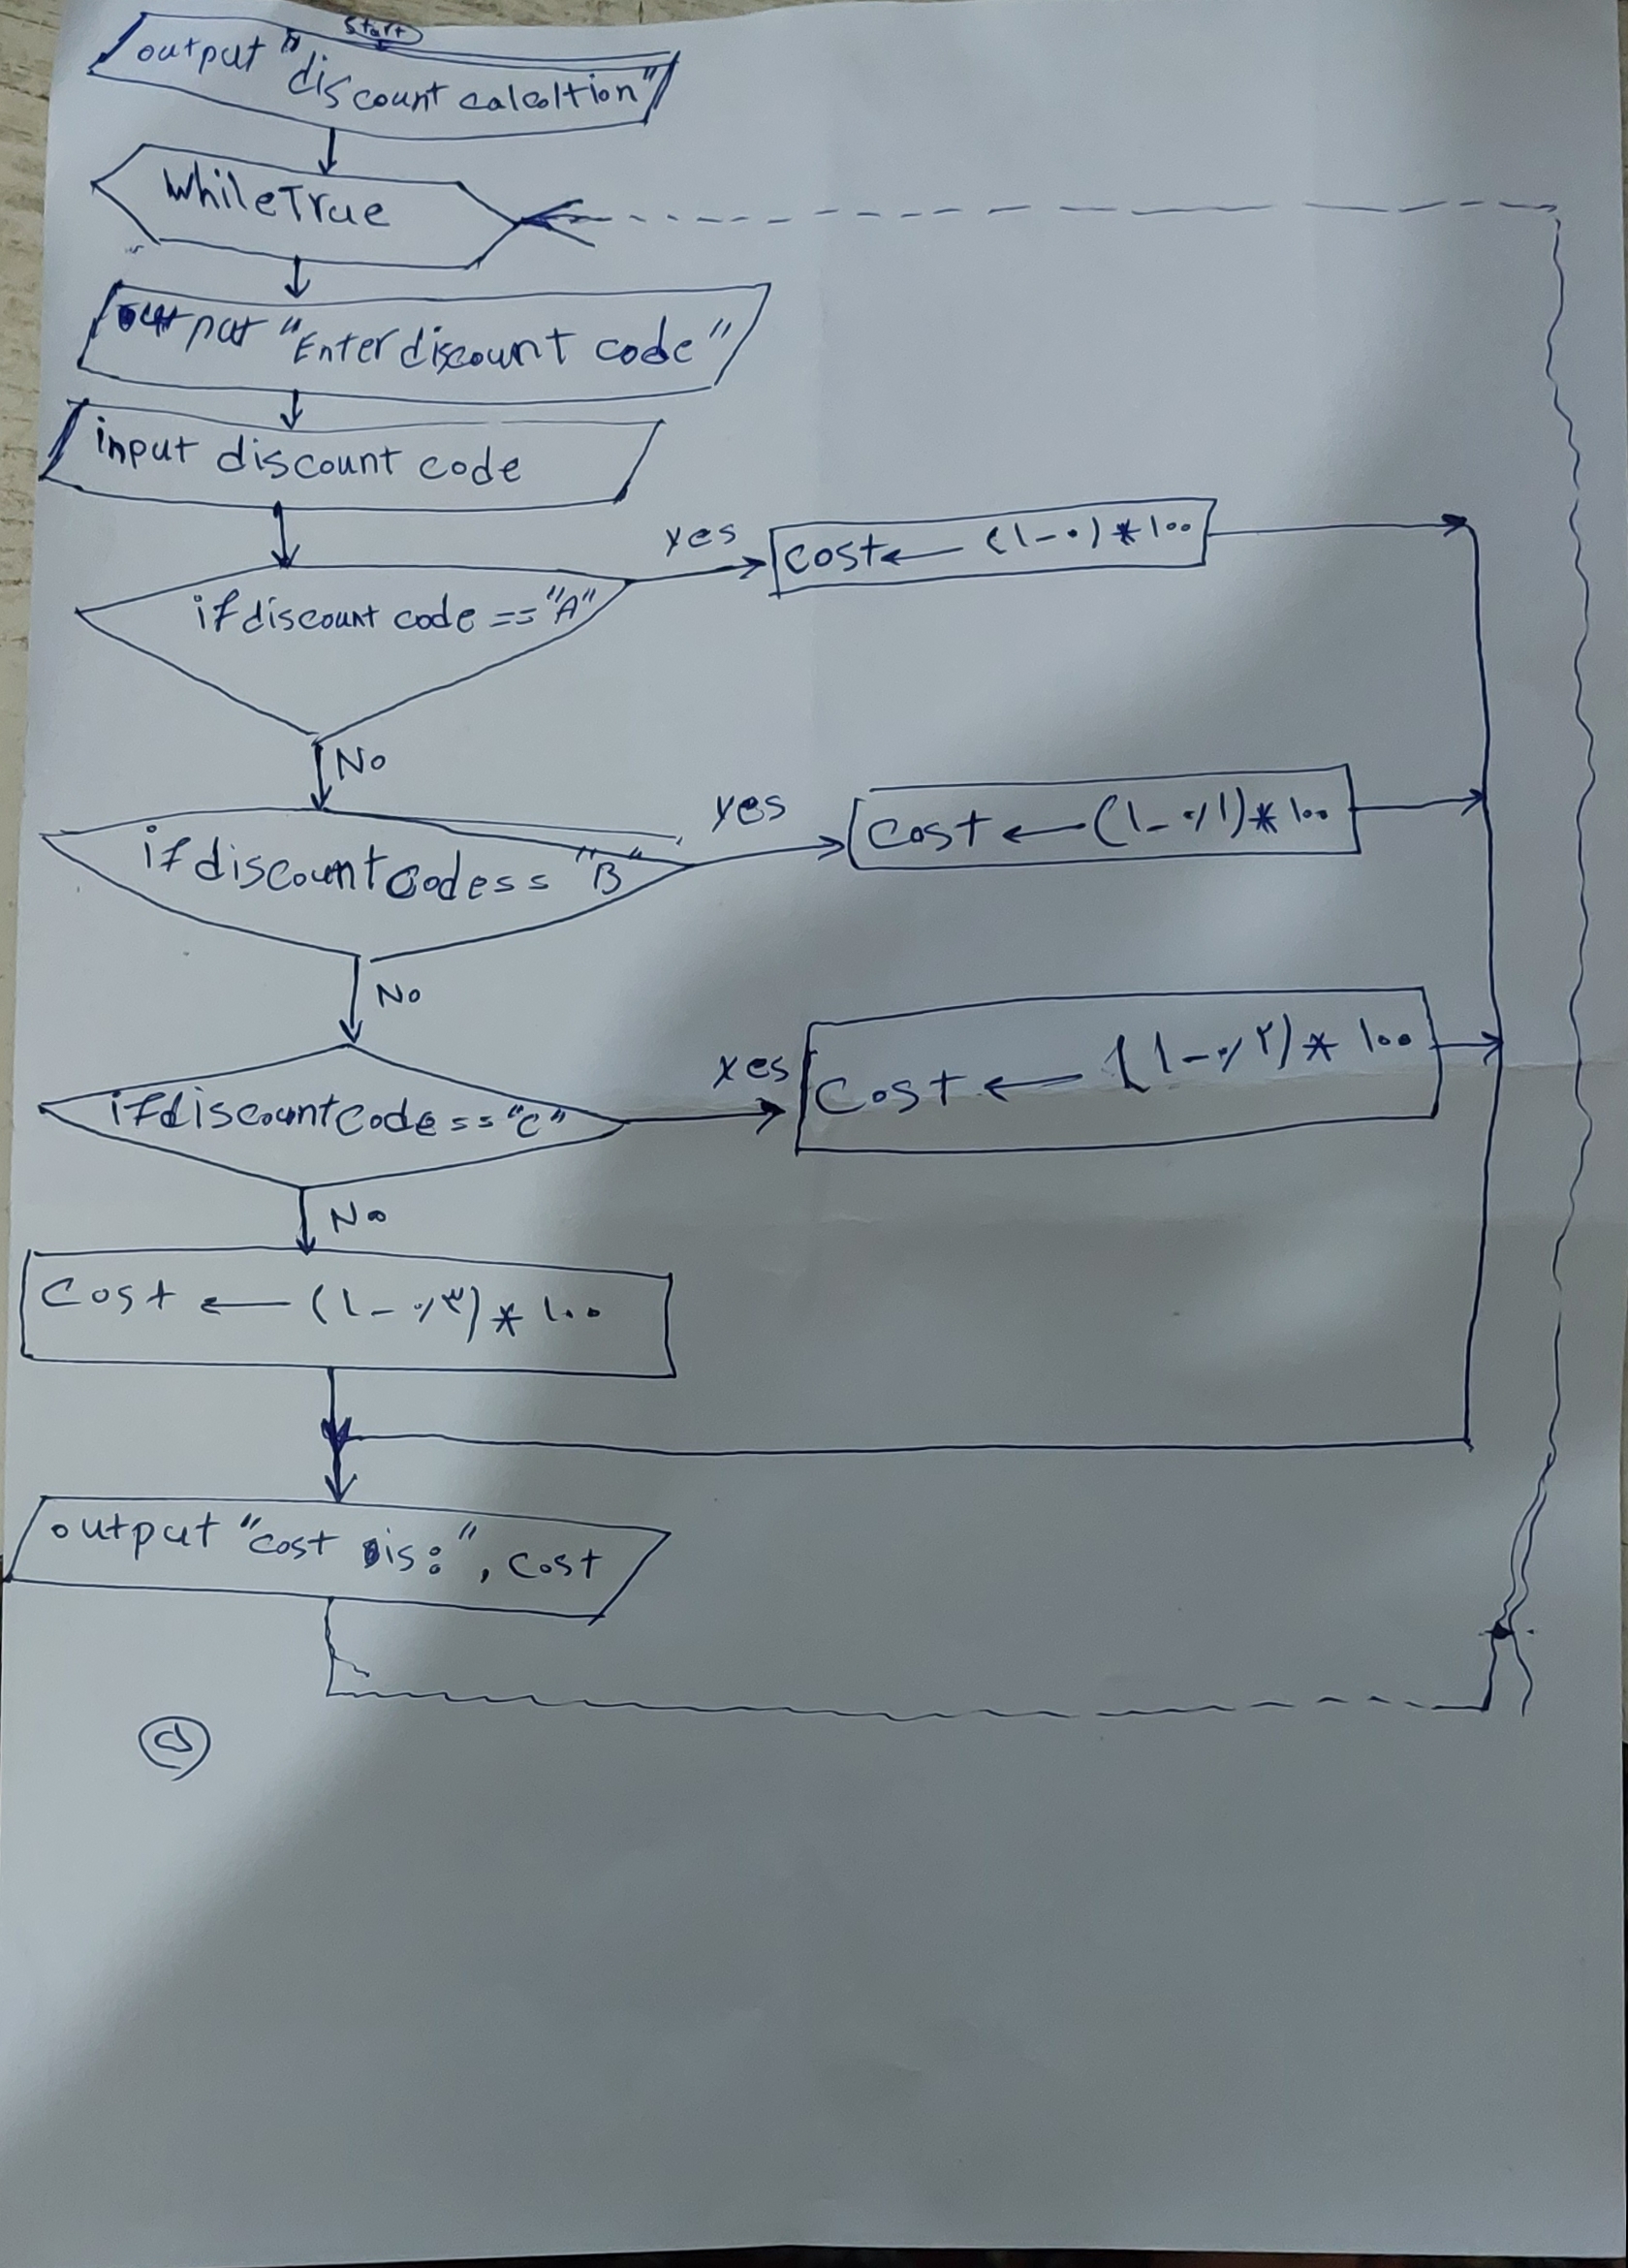 Start
output "discount calcoltion"
While True
output "Enter discount code"
input discount code
if discount code == "A"
yes
cost ← (۱-۰) * ۱۰۰
No
if discount code == "B"
yes
cost ← (۱-۰/۱) * ۱۰۰
No
if discount code == "C"
yes
cost ← (۱-۰/۲) * ۱۰۰
No
cost ← (۱-۰/۳) * ۱۰۰
output "cost is:", cost